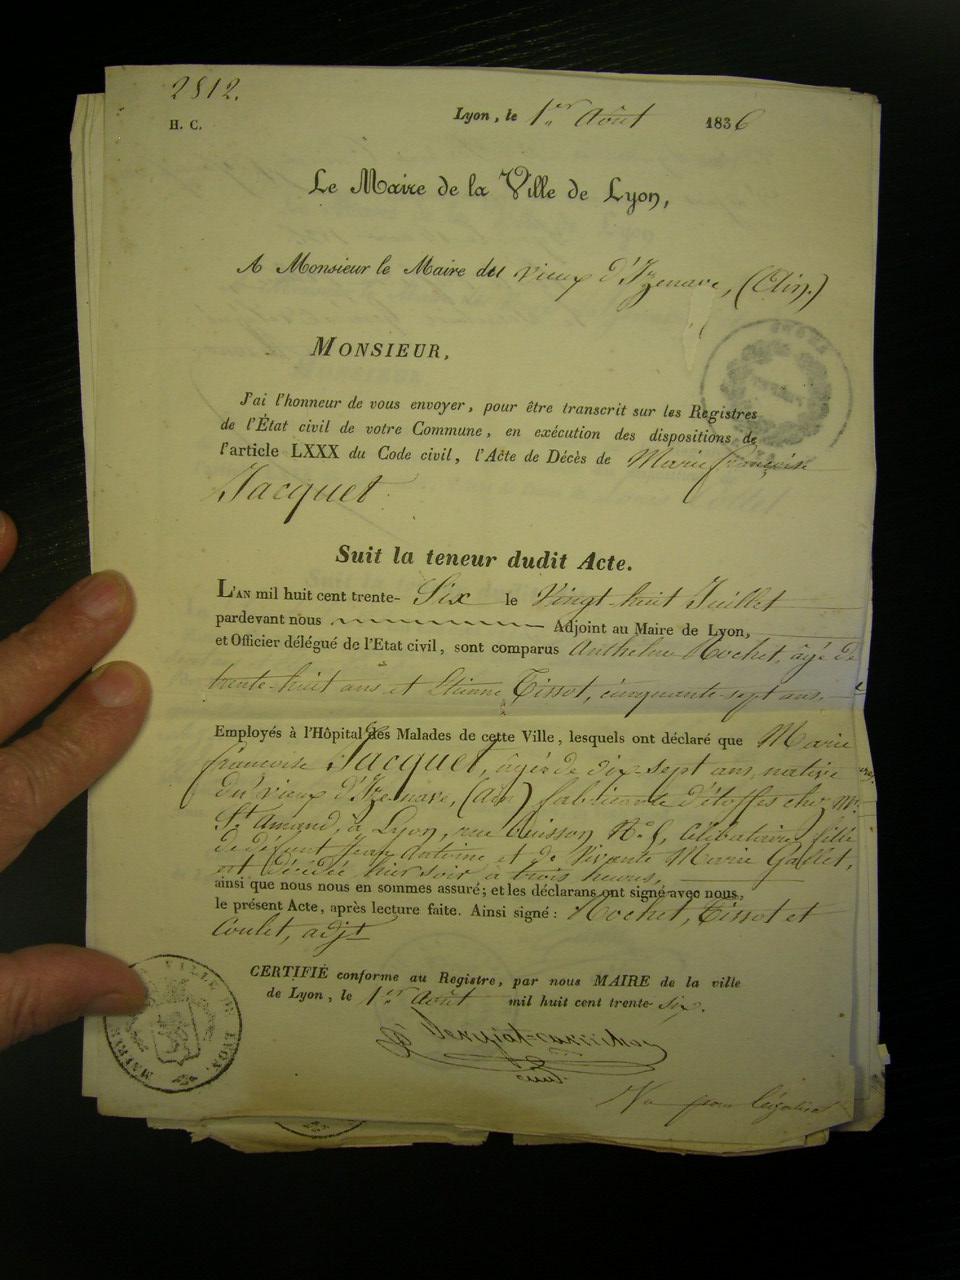 2812.
H. C.
Lyon, le 1.er Août 1836
Le Maire de la Ville de Lyon,
A Monsieur le Maire du vieux d'Izenave, (Ain.)
MONSIEUR,
J'ai l'honneur de vous envoyer, pour être transcrit sur les Registres
de l'État civil de votre Commune, en exécution des dispositions de
l'article LXXX du Code civil, l'Acte de Décès de Marie françoise
Jacquet.
Suit la teneur dudit Acte.
L'AN mil huit cent trente- Six le Vingt-huit Juillet
pardevant nous Adjoint au Maire de Lyon,
et Officier délégué de l'Etat civil, sont comparus Anthelme Rochet, âgé de
trente-huit ans et Etienne Tissot, cinquante-sept ans,
Employés à l'Hôpital des Malades de cette Ville, lesquels ont déclaré que Marie
françoise Jacquet, âgée de dix-sept ans, native
du vieux d'Izenave, (Ain) fabricante d'étoffes chez Mr.
St. Amand, à Lyon, rue buisson N.o célibataire, fille
de défunt Jean Antoine et de Vivante Marie Gallet,
est décédée hier soir à trois heures,
ainsi que nous nous en sommes assuré; et les déclarans ont signé avec nous,
le présent Acte, après lecture faite. Ainsi signé: Rochet, Tissot et
Coulet, adjt
CERTIFIÉ conforme au Registre, par nous MAIRE de la ville
de Lyon, le 1.er Août mil huit cent trente-six.
MAIRIE VILLE DE LYON.
Vu pour légalisation